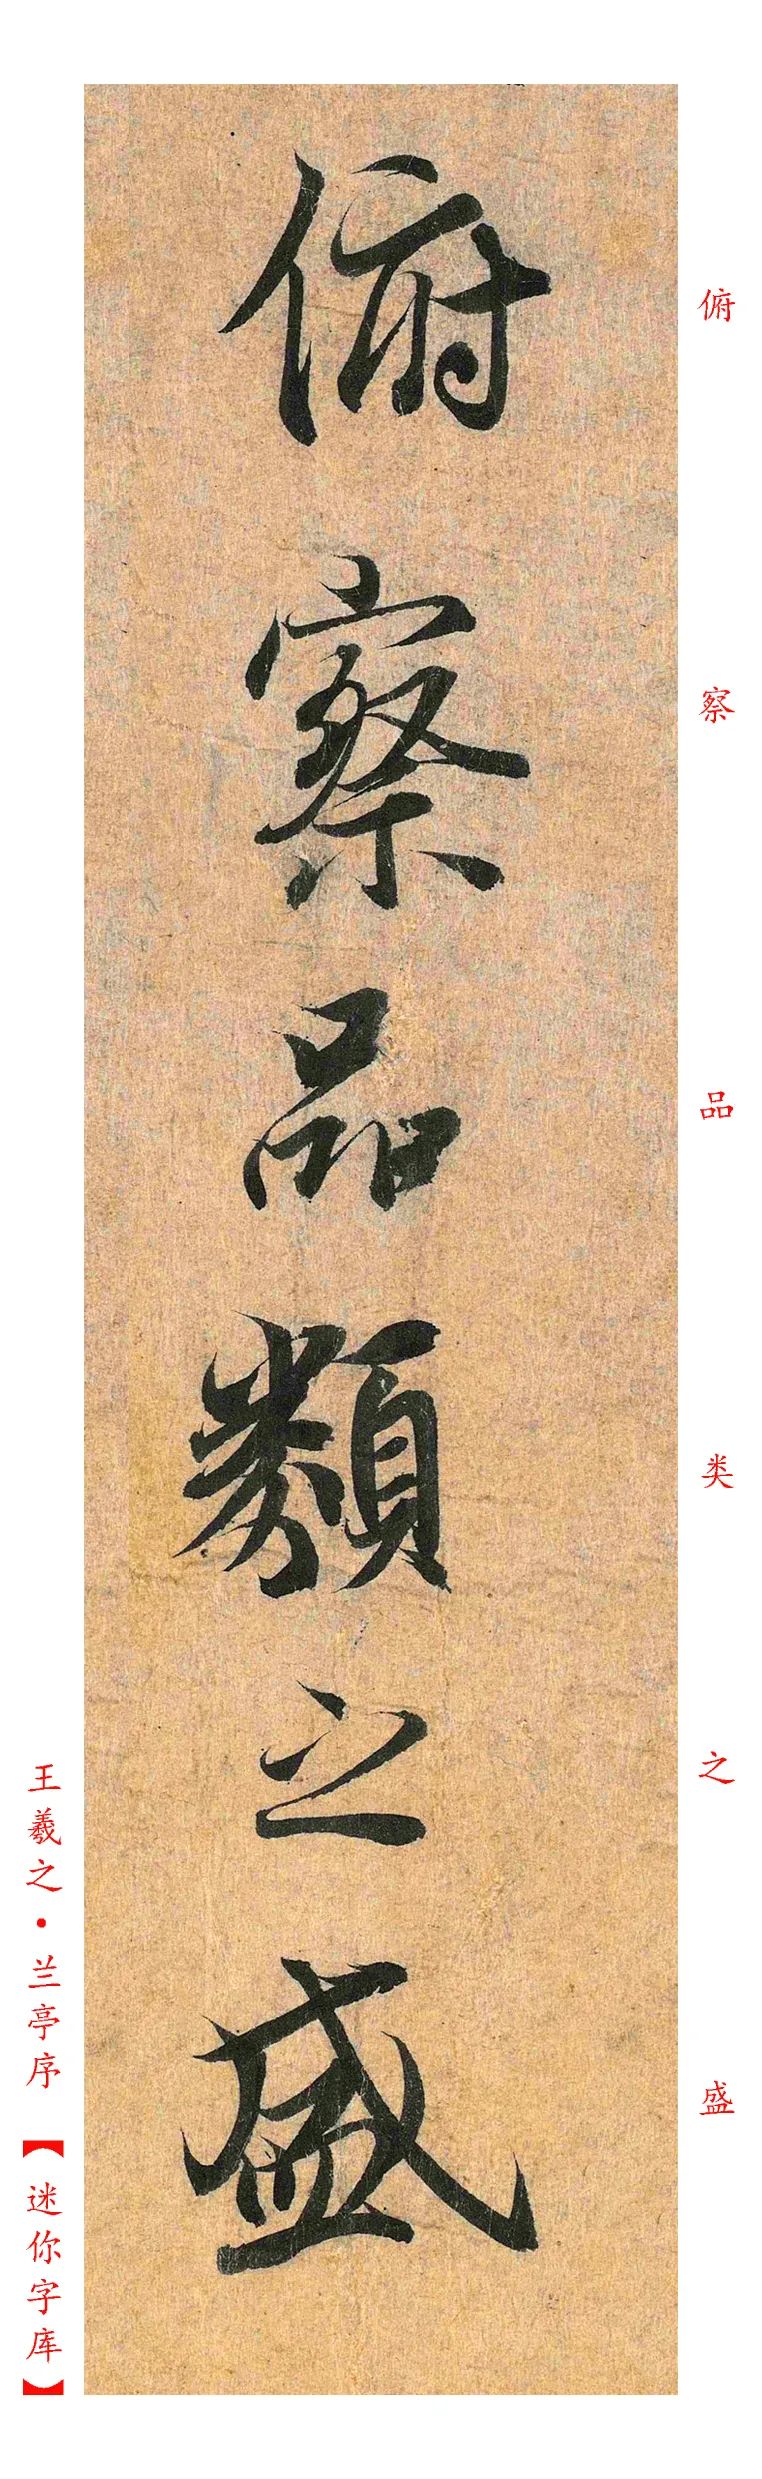 俯察品類之盛
俯察品类之盛
王羲之·兰亭序【迷你字库】